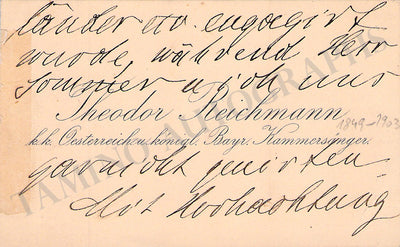 länder etc. engagirt
wurde, während Herr
Sommer u. ich uns
Theodor Reichmann
1849-1903
k.k. Oesterreich.u.königl. Bayr. Kammersänger.
gar nicht
Mit Hochachtung
TAMINO AUTOGRAPHS